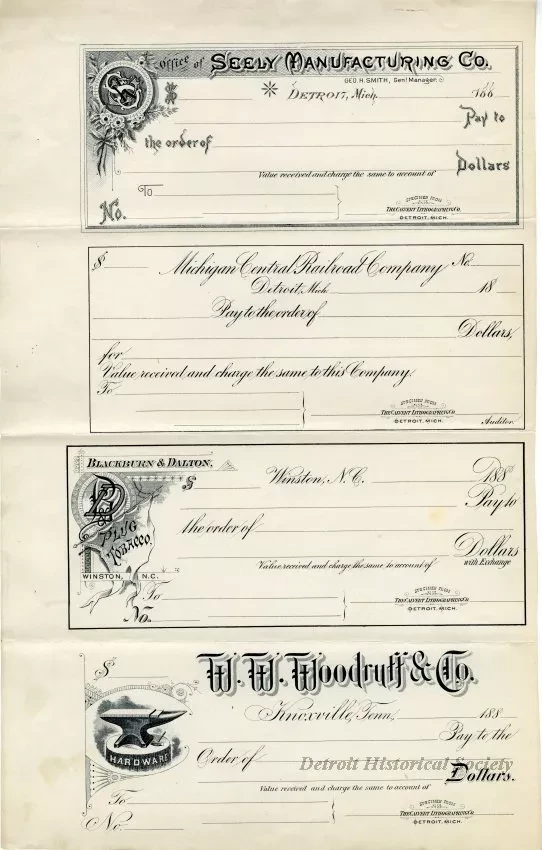 Office of SEELY MANUFACTURING CO.
GEO. H. SMITH, Genl Manager.
$ DETROIT, Mich. 188
Pay to
the order of
Dollars
Value received and charge the same to account of
To
No.
SPECIMEN FROM
THE CALVERT LITHOGRAPHING CO.
DETROIT, MICH.
$ Michigan Central Railroad Company No.
Detroit, Mich. 18
Pay to the order of
Dollars,
for
Value received and charge the same to this Company.
To
SPECIMEN FROM
THE CALVERT LITHOGRAPHING CO.
DETROIT, MICH. Auditor.
BLACKBURN & DALTON,
$ Winston, N.C. 188
B & D
PLUG
TOBACCO.
WINSTON, N.C.
Pay to
the order of
Dollars
with Exchange
Value received and charge the same to account of
To
No.
SPECIMEN FROM
THE CALVERT LITHOGRAPHING CO.
DETROIT, MICH.
$ W. W. Woodruff & Co.
Knoxville, Tenn. 188
HARDWARE
Pay to the
Order of
Detroit Historical Society
Dollars.
Value received and charge the same to account of
To
No.
SPECIMEN FROM
THE CALVERT LITHOGRAPHING CO.
DETROIT, MICH.